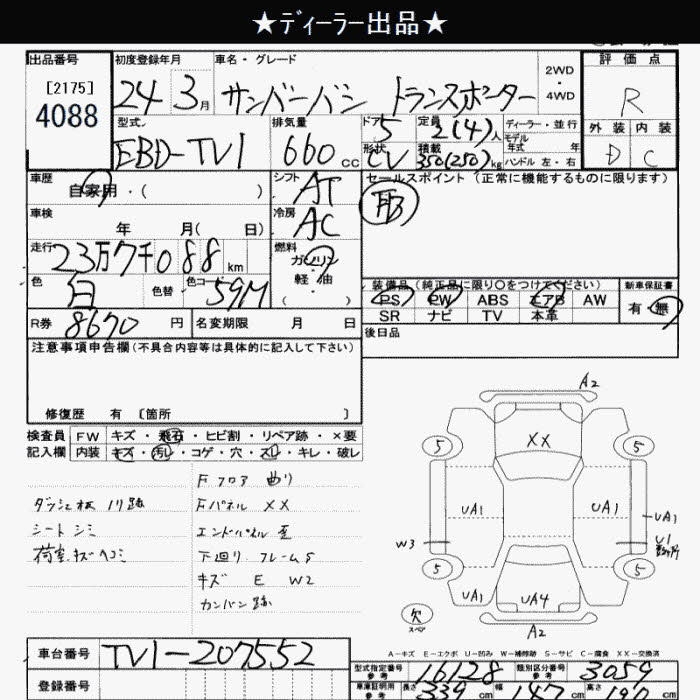 ★ディーラー出品★
出品番号
[2175]
4088
初度登録年月
24 3月
車名・グレード
サンバーバン トランスポーター
2WD
4WD
評価点
R
外装 内装
D C
型式
EBD-TV1
排気量
660cc
ドア
5
定員
2(4)人
形状
CV
積載
350(250)kg
ディーラー・並行
モデル年式 年
ハンドル 左・右
車歴
自家用・( )
シフト
AT
車検
年 月( 日)
冷房
AC
走行
23万7千088km
燃料
ガソリン
軽・油
( )
色
白
色替
色コード
59M
R券
8670円
名変期限 月 日
セールスポイント (正常に機能するものに限ります)
装備品(純正品に限り○をつけてください)
PS PW ABS エアB AW
SR ナビ TV 本革
新車保証書
有 無
後日品
注意事項申告欄(不具合内容等は具体的に記入して下さい)
修復歴 有 〔箇所 〕
検査員
記入欄
FW キズ・飛石・ヒビ割・リペア跡・×要
内装 キズ・汚レ・コゲ・穴・スレ・キレ・破レ
Fフロア 曲り
ダッシュ板 ノリ跡
Fパネル XX
シート シミ
エンドパネル 歪
荷室キズヘコミ
下廻り フレームS
キズ E W2
カンバン跡
A2
5 5
XX
UA1 UA1
UA1
W3 U1
5 5
UA1 UA4
欠
スペア
A2
A-キズ E-エクボ U-凹み W-補修跡 S-サビ C-腐食 XX-交換済
車台番号
TV1-207552
登録番号
型式指定番号
参考
16128
類別区分番号
参考
3059
車庫証明用
参考
長さ
339cm
幅
147cm
高さ
190cm